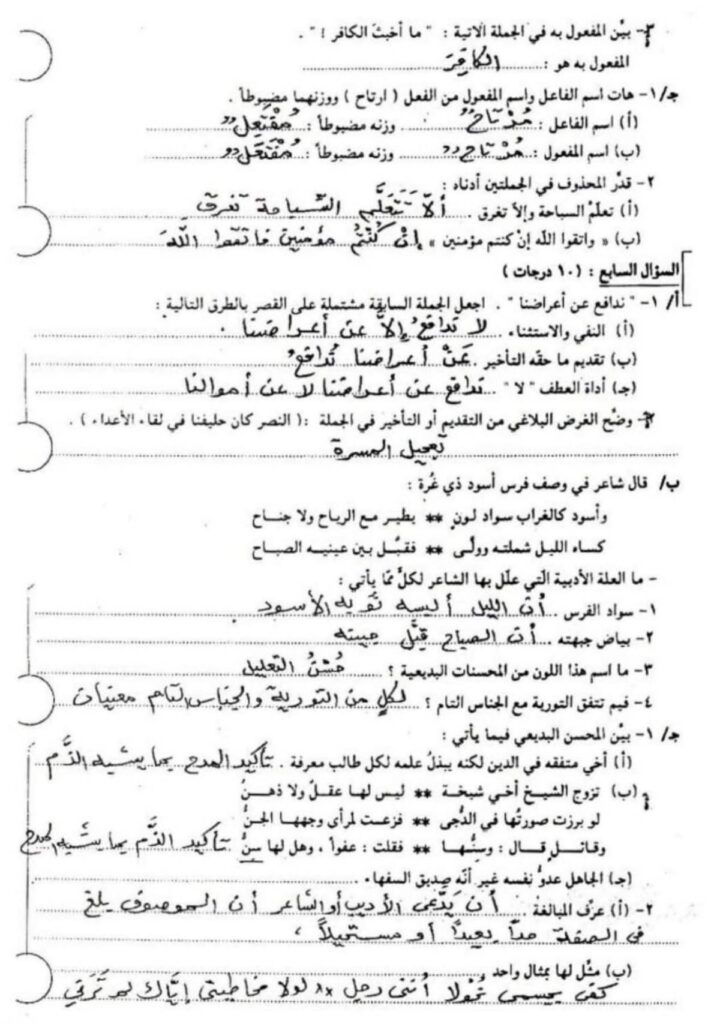 ٣- بيّن المفعول به في الجملة الآتية : " ما أخبثَ الكافر ! " .
المفعول به هو : الكافِرَ
جـ/١- هات اسم الفاعل واسم المفعول من الفعل ( ارتاح ) ووزنهما مضبوطاً .
(أ) اسم الفاعل : مُرْتاحٌ وزنه مضبوطاً : مُفْتَعِلٌ
(ب) اسم المفعول : مُرْتاحٌ وزنه مضبوطاً : مُفْتَعَلٌ
٢- قدّر المحذوف في الجملتين أدناه :
(أ) تعلّمْ السباحة وإلاّ تغرق . ألاّ تَتَعَلَّم السِّباحة تغرق
(ب) « واتقوا اللّه إنْ كنتم مؤمنين » إنْ كُنْتُمْ مؤمنين فاتقوا اللَّهَ
السؤال السابع : (١٠ درجات )
أ/ ١- " ندافع عن أعراضنا " . اجعل الجملة السابقة مشتملة على القصر بالطرق التالية :
(أ) النفي والاستثناء . لا ندافعُ إلاَّ عن أعراضنا .
(ب) تقديم ما حقّه التأخير . عَنْ أعراضنا نُدافعُ
(جـ) أداة العطف " لا " . ندافع عن أعراضنا لا عن أموالنا
٢- وضّح الغرض البلاغي من التقديم أو التأخير في الجملة :( النصر كان حليفنا في لقاء الأعداء ) .
تعجيل المسرة
ب/ قال شاعر في وصف فرس أسود ذي غُرة :
وأسود كالغراب سواد لون ** يطير مع الرياح ولا جناح
كساه الليل شملته وولّى ** فقبّل بين عينيه الصباح
- ما العلة الأدبية الّتي علّل بها الشاعر لكلٍّ ممّا يأتي :
١- سواد الفرس . أنّ الليل ألبسه ثوبه الأسود
٢- بياض جبهته . أنّ الصباح قبَّل جبينه
٣- ما اسم هذا اللون من المحسنات البديعية ؟ حُسْنُ التعليل
٤- فيم تتفق التورية مع الجناس التام ؟ لكلٍ من التورية والجناس التام معنيان
جـ/ ١- بيّن المحسن البديعي فيما يأتي :
(أ) أخي متفقه في الدين لكنه يبذلُ علمه لكل طالب معرفة . تأكيد المدح بما يشبه الذَّم
(ب) تزوج الشيخ أخي شيخة ** ليس لها عقلٌ ولا ذهنُ
لو برزت صورتُها في الدُّجى ** فزعت لمرأى وجهها الجنُّ
وقائل قال : وسنُّها ** فقلت : عفواً ، وهل لها سنُّ تأكيد الذَّم بما يشبه المدح
(جـ) الجاهل عدوُّ نفسه غير أنّه صديق السفهاء .
٢- (أ) عرّف المبالغة . أن يَدَّعي الأديب أو الشاعر أن الموصوف بلغ
في الصفة حداً بعيداً أو مستحيلاً ،
(ب) مثّل لها بمثال واحد . كفى بجسمي نُحولا أنني رجل ** لولا مخاطبتي إيّاك لم تَرَني